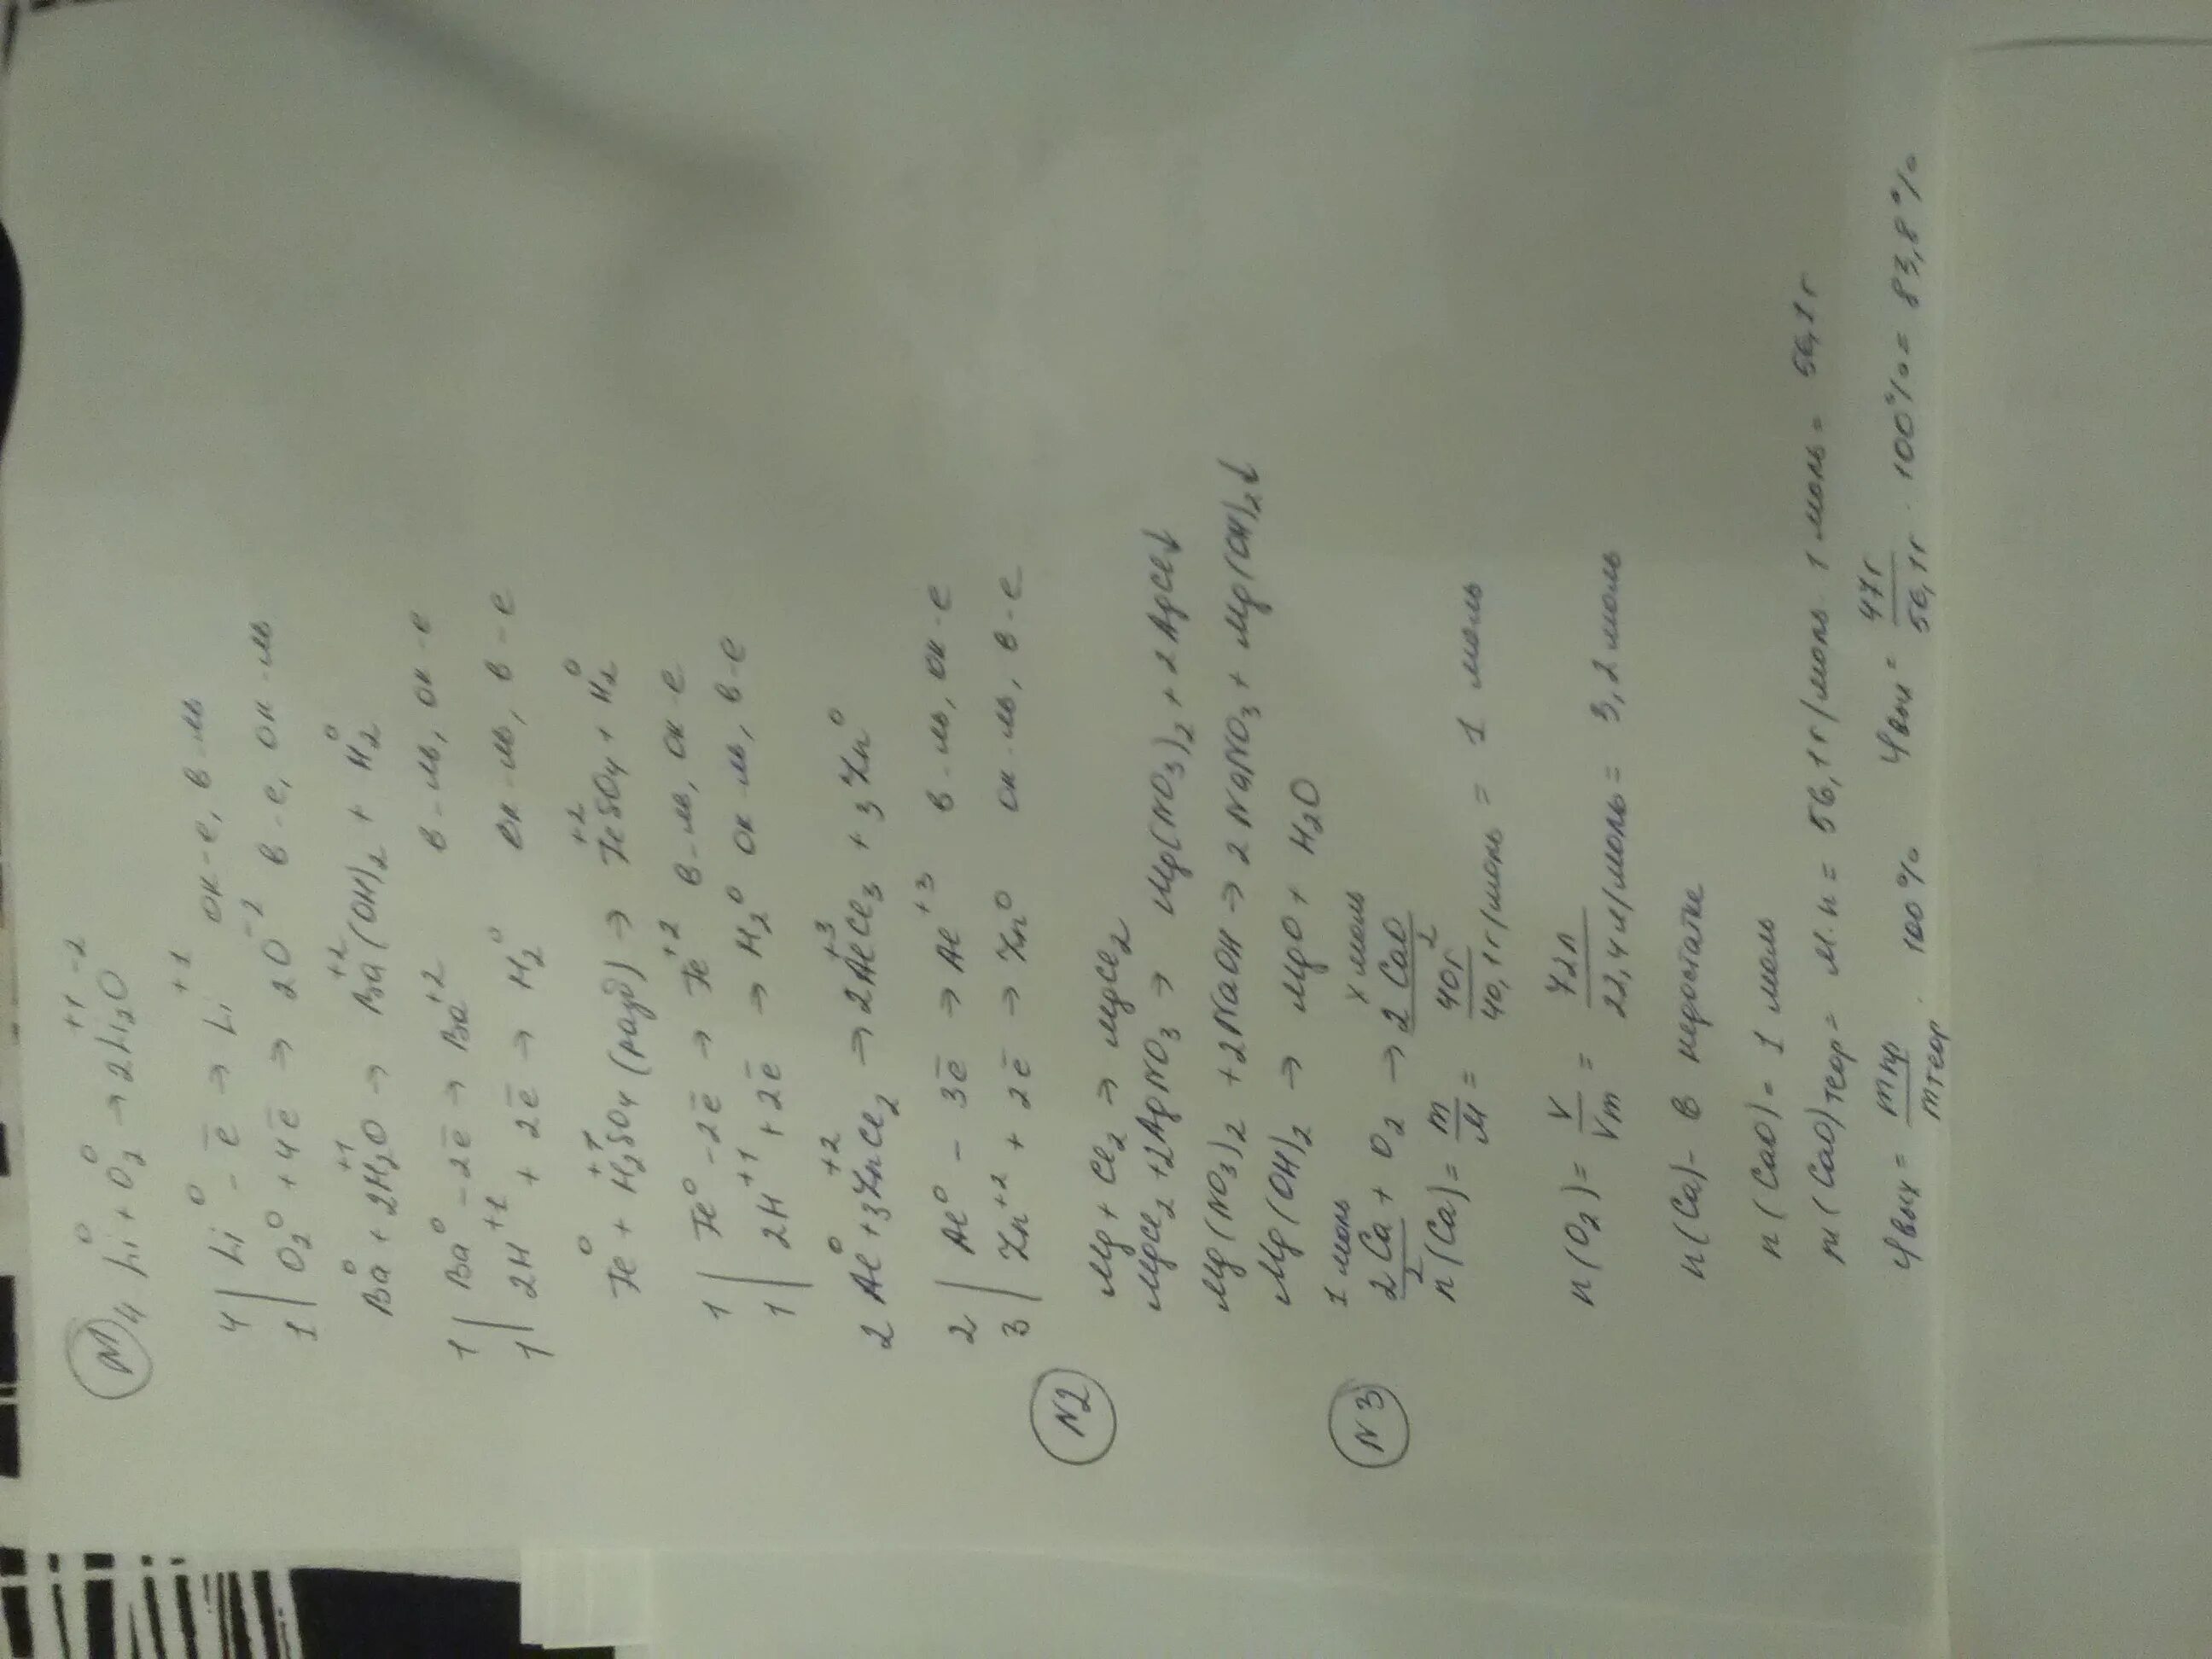 N1 4Li⁰ + O₂⁰ → 2Li₂⁺¹O⁻²
4 | Li⁰ - ē → Li⁺¹ ок-е, в-ль
1 | O₂⁰ + 4ē → 2O⁻² в-е, ок-ль
Ba⁰ + 2H₂⁺¹O → Ba⁺²(OH)₂ + H₂⁰
1 | Ba⁰ - 2ē → Ba⁺² в-ль, ок-е
1 | 2H⁺¹ + 2ē → H₂⁰ ок-ль, в-е
Fe⁰ + H₂⁺¹SO₄ (разб) → Fe⁺²SO₄ + H₂⁰
1 | Fe⁰ - 2ē → Fe⁺² в-ль, ок-е
1 | 2H⁺¹ + 2ē → H₂⁰ ок-ль, в-е
2Al⁰ + 3Zn⁺²Cl₂ → 2Al⁺³Cl₃ + 3Zn⁰
2 | Al⁰ - 3ē → Al⁺³ в-ль, ок-е
3 | Zn⁺² + 2ē → Zn⁰ ок-ль, в-е
N2 Mg + Cl₂ → MgCl₂
MgCl₂ + 2AgNO₃ → Mg(NO₃)₂ + 2AgCl↓
Mg(NO₃)₂ + 2NaOH → 2NaNO₃ + Mg(OH)₂↓
Mg(OH)₂ → MgO + H₂O
1 моль x моль
N3 2Ca + O₂ → 2CaO
2 2
n(Ca) = m/M = 40г/40,1г/моль = 1 моль
n(O₂) = V/Vm = 72л/22,4л/моль = 3,2 моль
n(Ca) - в недостатке
n(CaO) = 1 моль
m(CaO)теор = M·n = 56,1г/моль · 1 моль = 56,1г
φвых = mпр/mтеор · 100% φвых = 47г/56,1г · 100% = 83,8%